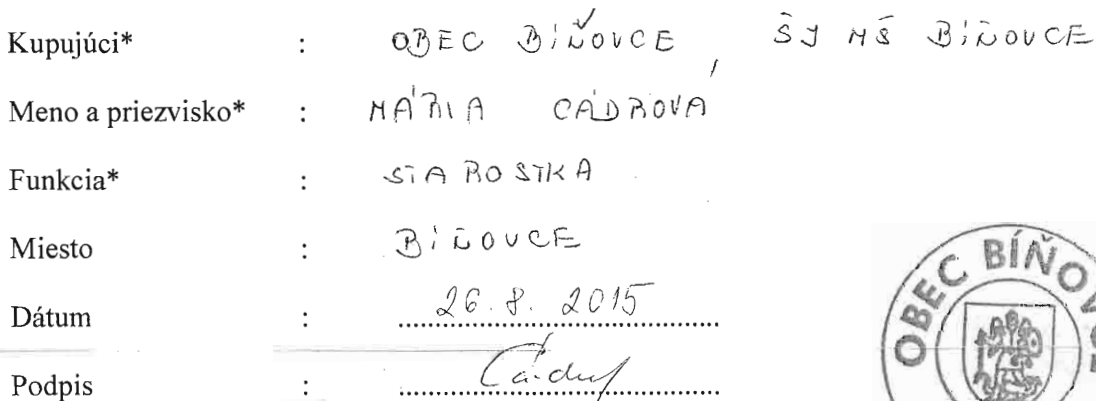 Kupujúci* : OBEC BÍŇOVCE ŠJ MŠ BÍŇOVCE
Meno a priezvisko* : MÁRIA CÁDROVÁ
Funkcia* : STAROSTKA
Miesto : BÍŇOVCE
Dátum : 26.8. 2015
Podpis :
OBEC BÍŇOVCE